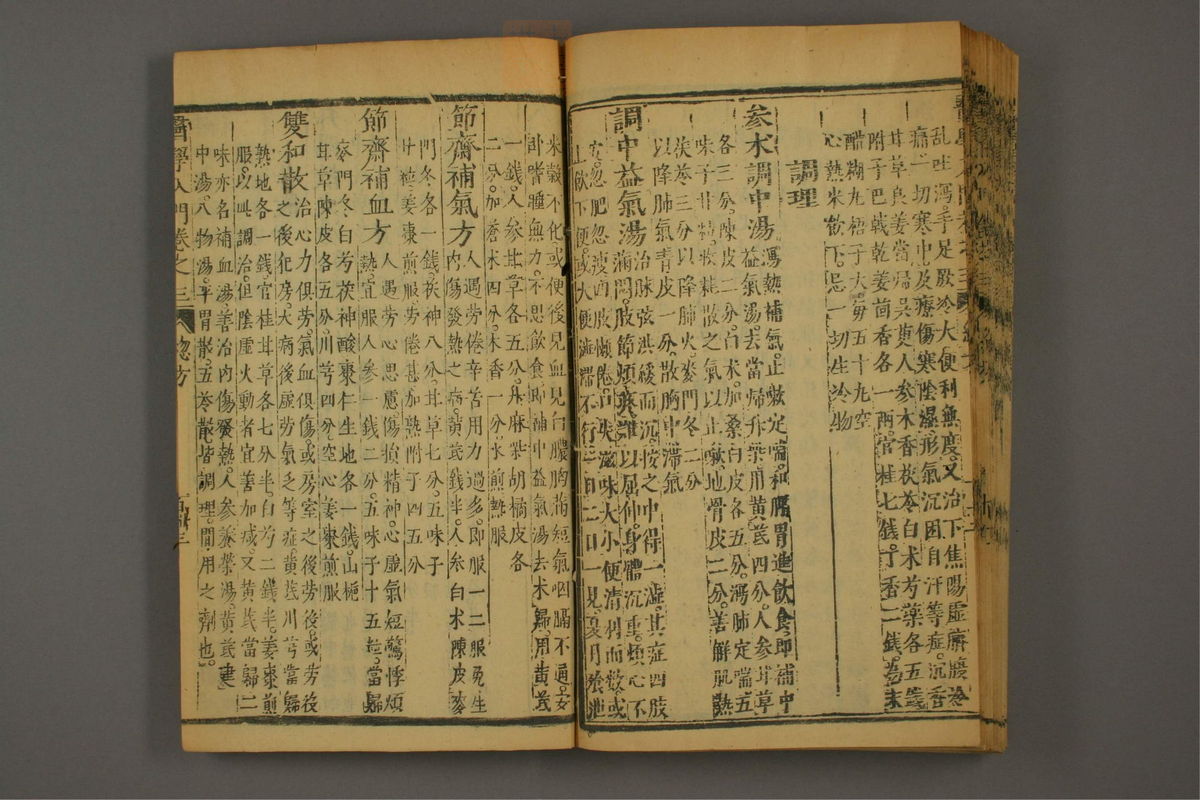 亂吐瀉手足厥冷大便利無度又治下焦陽虛臍腹冷
痛一切寒中及療傷寒陰濕形氣沉困自汗等症沉香
甘草良姜當歸吳萸人參木香茯苓白朮芍藥各五錢
附子巴戟乾姜茴香各一兩官桂七錢丁香二錢為末
醋糊丸梧子大每五十丸空
心熱米飲下忌一切生冷物
調理
參朮調中湯瀉熱補氣止嗽定喘和脾胃進飲食即補中
益氣湯去當歸升柴用黃芪四分人參甘草
各三分陳皮二分白朮加桑白皮各五分瀉肺定喘五
味子廿粒收耗散之氣以止嗽地骨皮二分善解肌熱
茯苓三分以降肺火麥門冬二分
以降肺氣青皮一分散胸中滯氣
調中益氣湯治脉弦洪緩而沉按之中得一澁其症四肢
滿悶肢節煩疼難以屈伸身體沉重煩心不
安忽肥忽瘦四肢懶倦口失滋味大小便清利而數或
上飲下便或大便澁滯不行一二日一見夏月飱泄
米穀不化或便後見血見白膿胸滿短氣咽膈不通安
卧嗜睡無力不思飲食即補中益氣湯去朮歸用黃芪
一錢人參甘草各五分升麻柴胡橘皮各
二分加蒼朮四分木香一分水煎熱服
節齋補氣方人遇勞倦辛苦用力過多即服一二服免生
內傷發熱之病黃芪錢半人參白朮陳皮麥
門冬各一錢茯神八分甘草七分五味子
廿粒姜棗煎服勞倦甚加熟附子四五分
節齋補血方人遇勞心思慮傷損精神心虛氣短驚悸煩
熱宜服人參一錢二分五味子十五粒當歸
麥門冬白芍茯神酸棗仁生地各一錢山梔
甘草陳皮各五分川芎四分空心姜棗煎服
雙和散治心力俱勞氣血俱傷或房室之後勞後或勞後
之後犯房大病後虛勞氣乏等症黃芪川芎當歸
熟地各一錢官桂甘草各七分半白芍二錢半姜棗煎
服以此調治但陰虛火動者宜善加減又黃芪當歸二
味亦名補血湯善治內傷發熱人參養榮湯黃芪建
中湯八物湯平胃散五苓散皆調理間用之劑也
醫學入門卷之三
總方